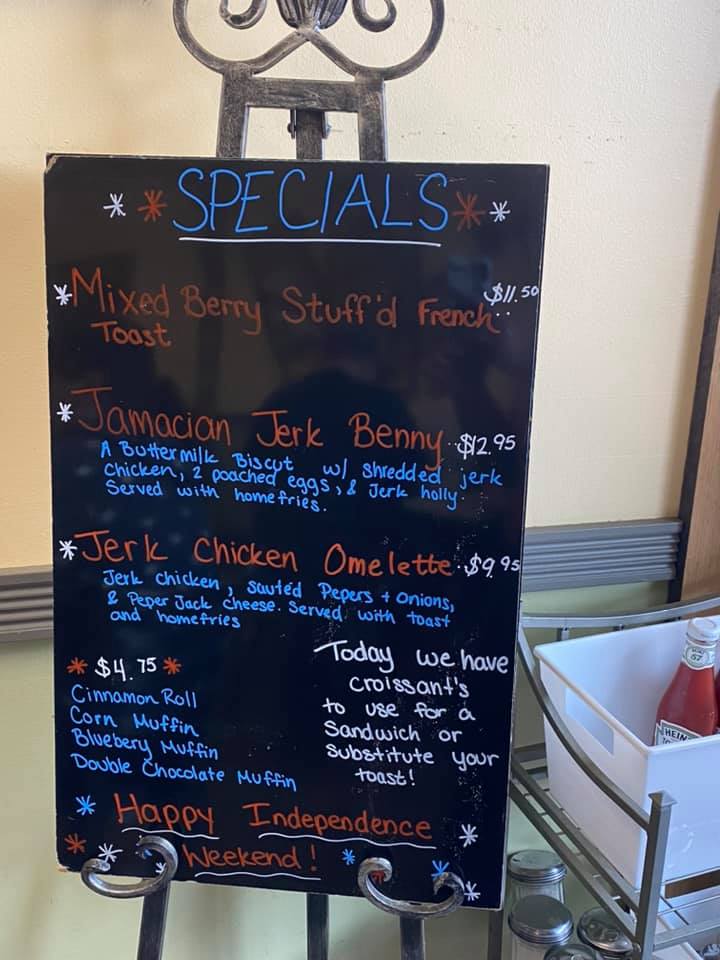 * * SPECIALS * *
* Mixed Berry Stuff'd French $11.50
Toast
* Jamacian Jerk Benny $12.95
A Buttermilk Biscut w/ shredded jerk
chicken, 2 poached eggs, & Jerk holly.
Served with homefries.
* Jerk Chicken Omelette $9.95
Jerk chicken, sautéd Pepers + onions,
& Peper Jack cheese. Served with toast
and homefries
* $4.75 *
Cinnamon Roll
Corn Muffin
Bluebery Muffin
Double Chocolate Muffin
Today we have
croissant's
to use for a
Sandwich or
substitute your
toast!
* Happy Independence *
* * Weekend! * *
57
HEINZ